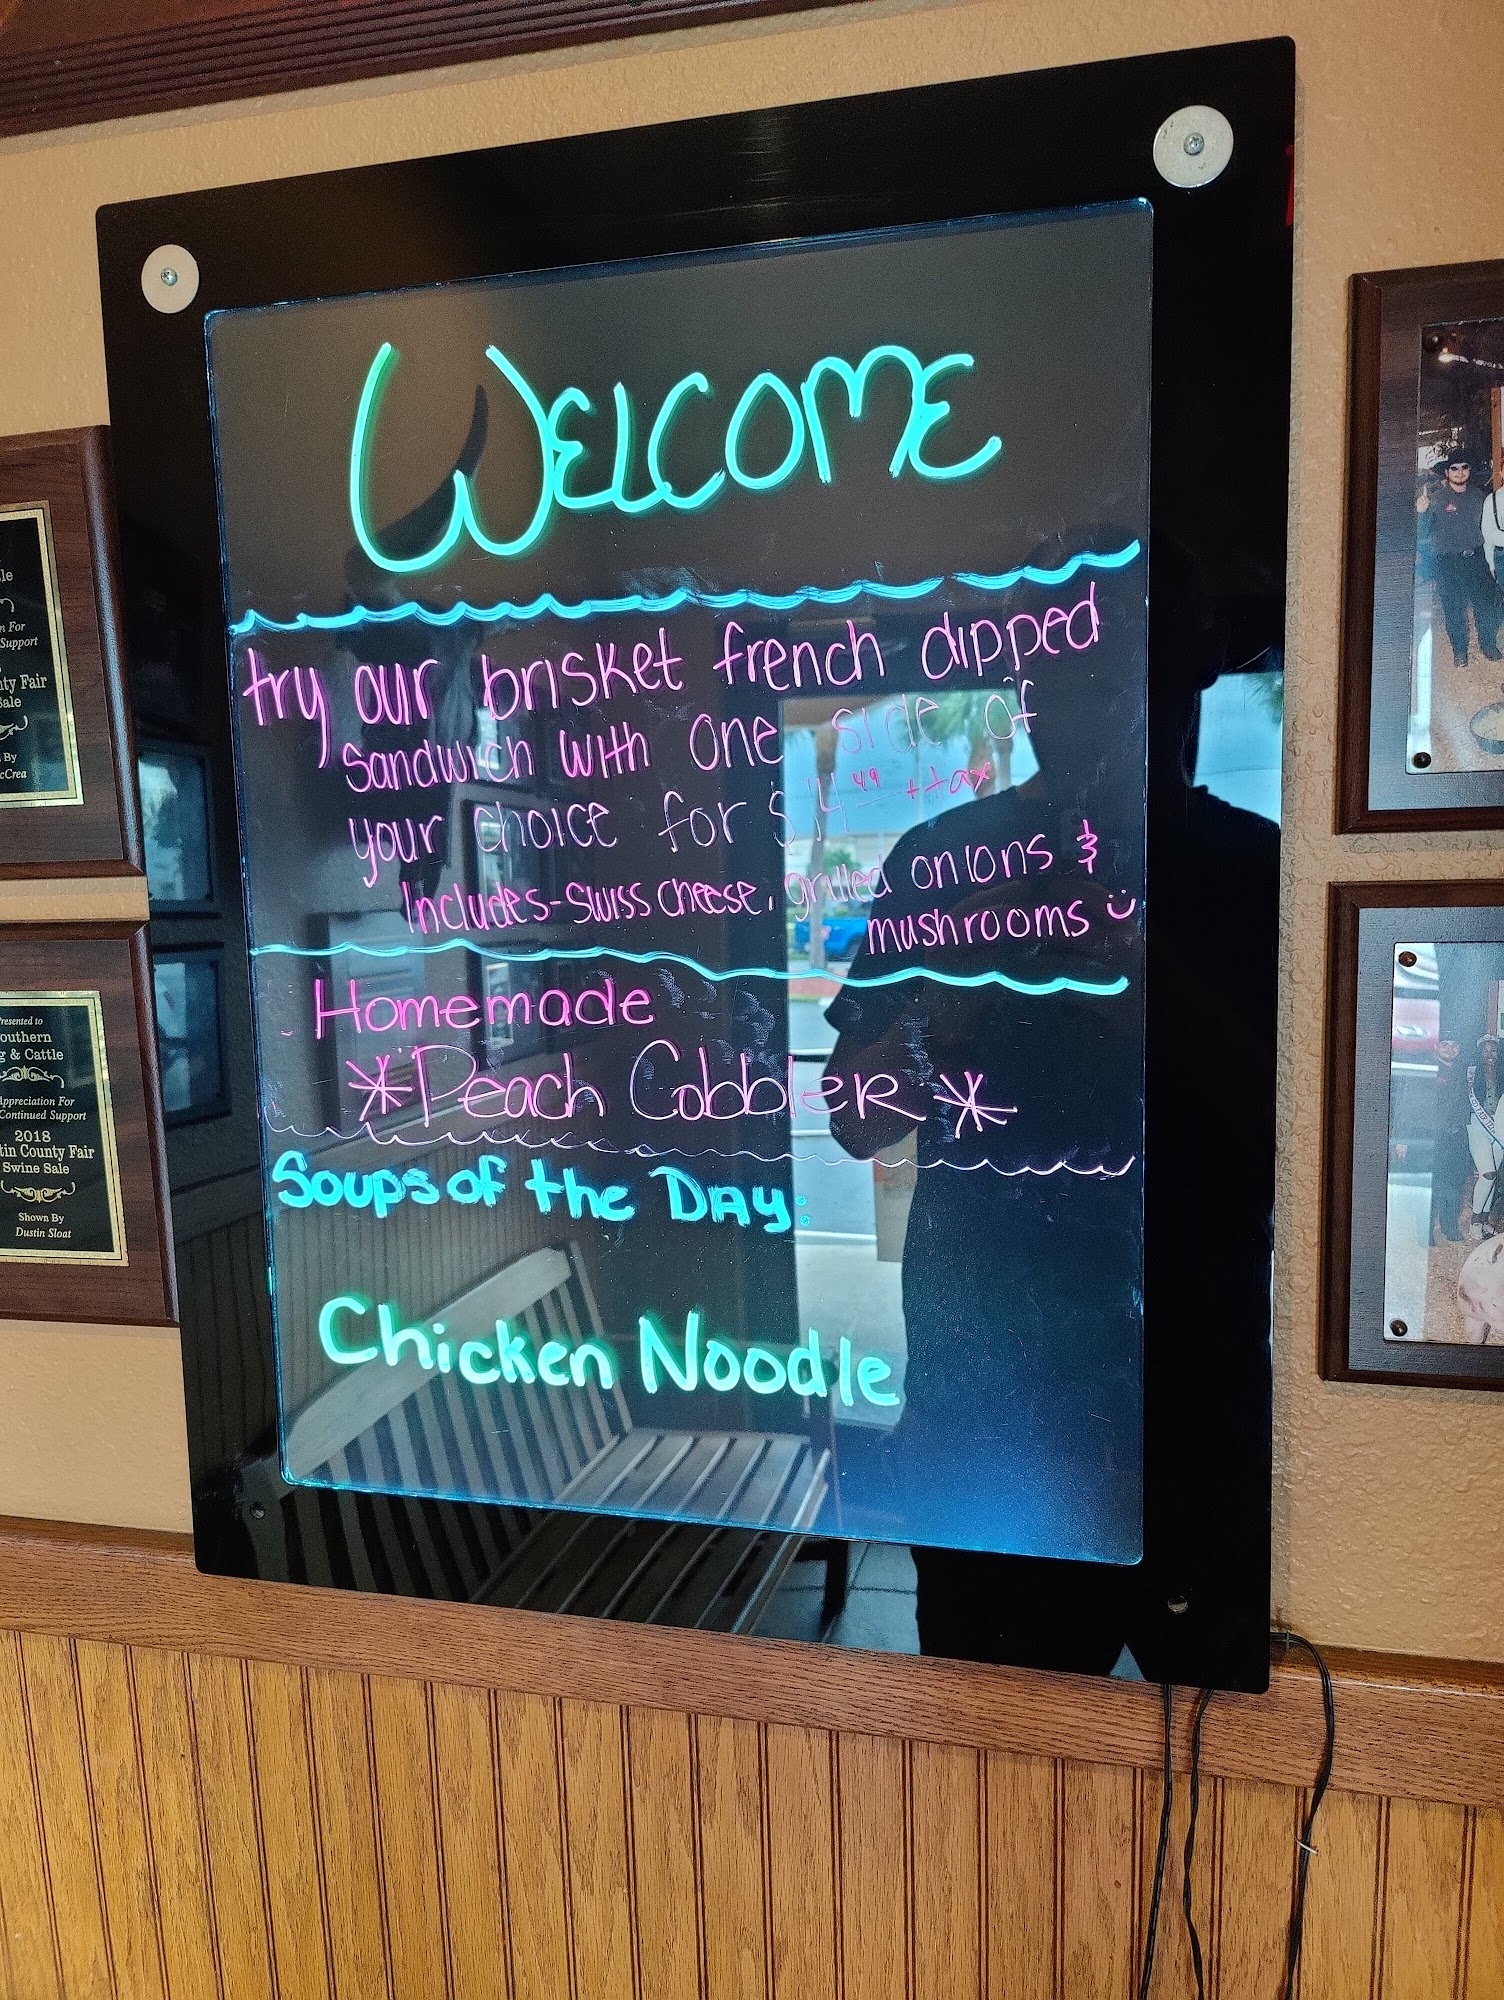 WELCOME
try our brisket french dipped
sandwich with one side of
your choice for $14.49 + tax
Includes - swiss cheese, grilled onions &
mushrooms
Homemade
*Peach CobbleR*
Soups of the DAY:
Chicken Noodle
County Fair
Sale
Presented to
Southern
& Cattle
Appreciation For
Continued Support
2018
County Fair
Swine Sale
Shown By
Dustin Sloat